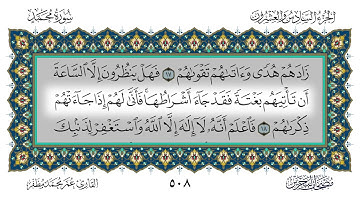 الجزء السادس والعشرون
سورة محمد
زَادَهُمْ هُدًى وَءَاتَىٰهُمْ تَقْوَىٰهُمْ ١٧ فَهَلْ يَنظُرُونَ إِلَّا ٱلسَّاعَةَ
أَن تَأْتِيَهُم بَغْتَةً فَقَدْ جَآءَ أَشْرَاطُهَا فَأَنَّىٰ لَهُمْ إِذَا جَآءَتْهُمْ
ذِكْرَىٰهُمْ ١٨ فَٱعْلَمْ أَنَّهُۥ لَآ إِلَٰهَ إِلَّا ٱللَّهُ وَٱسْتَغْفِرْ لِذَنۢبِكَ
القارئ عمر محمد مظفر
٥٠٨